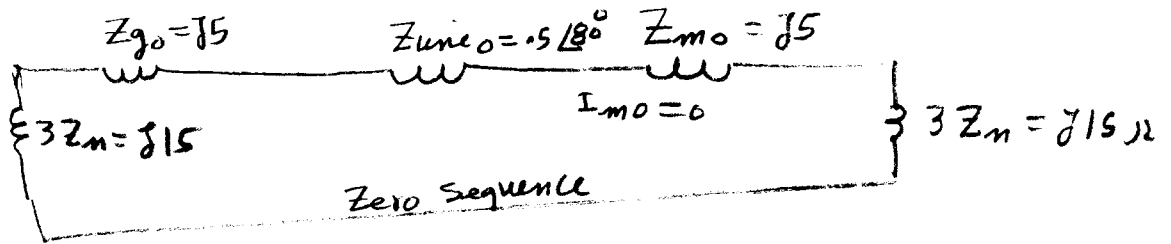 Zg₀ = J5 Zline₀ = .5 ∠80° Zm₀ = J5
Im₀ = 0
3Zn = J15
3Zn = J15 Ω
Zero Sequence